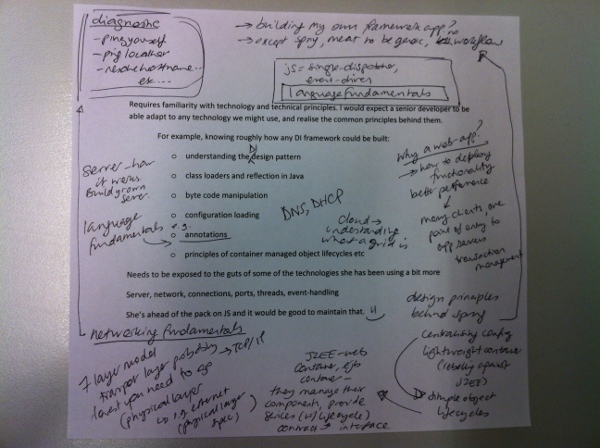 diagnostic
- ping yourself
- ping localhost
- resolve hostname...
etc...
→ building my own framework app? no
→ except spring, meant to be generic, workflow
js = single-dispatcher,
event-driven
language fundamentals
Requires familiarity with technology and technical principles. I would expect a senior developer to be
able adapt to any technology we might use, and realise the common principles behind them.
For example, knowing roughly how any DI framework could be built:
DI
o understanding the design pattern
o class loaders and reflection in Java
o byte code manipulation
o configuration loading
o annotations
o principles of container managed object lifecycles etc
server - how
it works
Build your own
server
language
fundamentals e.g.
DNS, DHCP
cloud →
understanding
what a grid is
Why a web-app?
→ how to deploy
functionality
better performance
many clients, one
point of entry to
app servers
transaction
management
Needs to be exposed to the guts of some of the technologies she has been using a bit more
Server, network, connections, ports, threads, event-handling
She's ahead of the pack on JS and it would be good to maintain that.
design principles
behind spring
centralising config
lightweight container
(rebelling against
J2EE)
simple object
lifecycles
networking fundamentals
7 layer model
transport layer protocols → TCP/IP
lowest you need to go
(physical layer
is e.g. ethernet
(physical layer
spec)
J2EE - web
container, ejb
container -
they manage their
components, provide
services (w/ lifecycle)
contract → interface